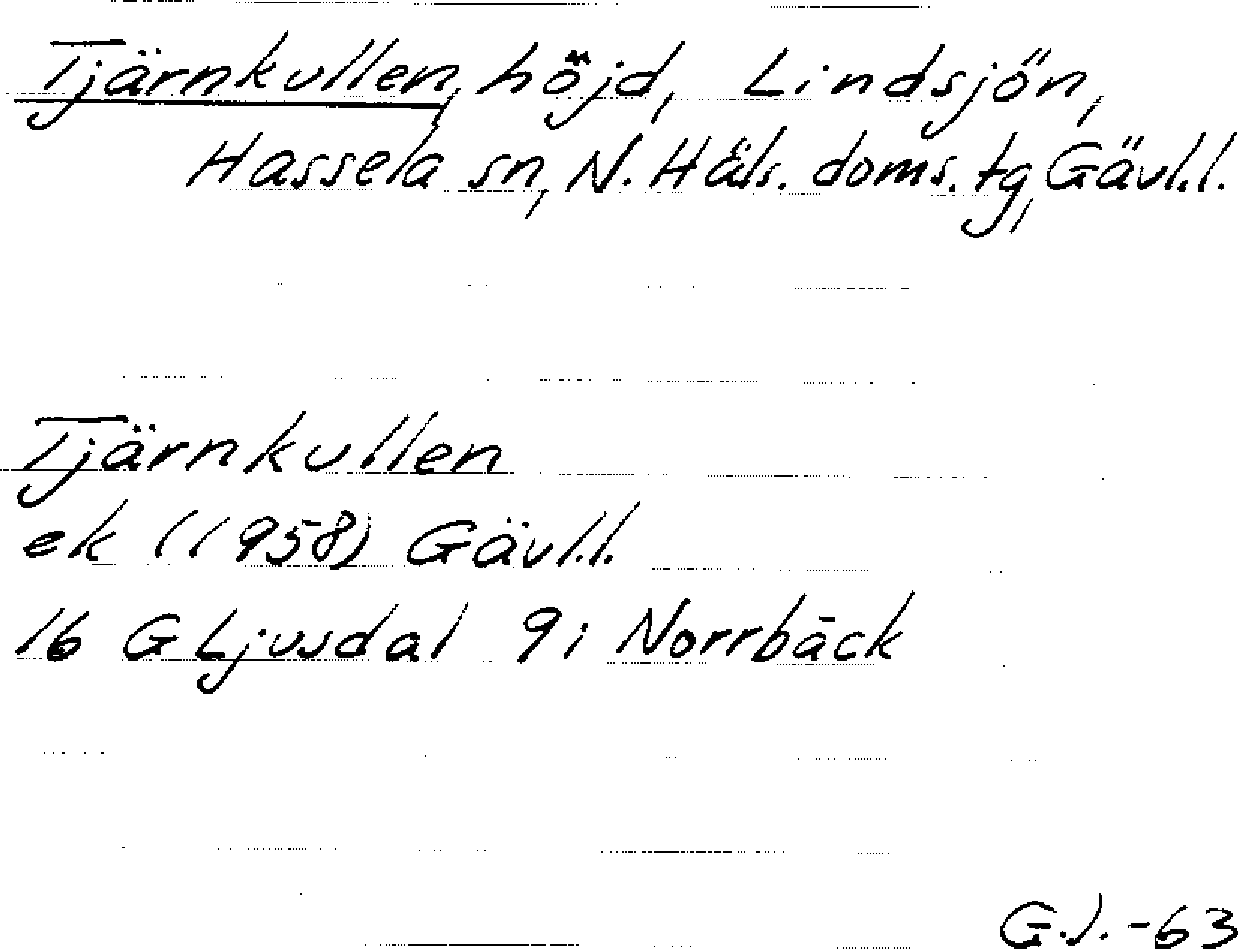 Tjärnkullen, höjd, Lindsjön,
Hassela sn, N. Häls. doms. tg, Gävl.l.
Tjärnkullen
ek (1958) Gävl.l.
16 G Ljusdal 9i Norrbäck
G.J. -63